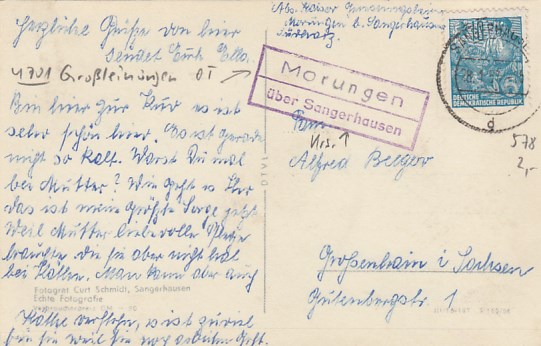 Herzliche Grüße von hier
sendet Euch Ella.
4701 Großleinungen OT
Bin hier zur Kur es ist
sehr schön hier. Es ist gerade
nicht so kalt. Warst Du mal
bei Mutter? Wie geht es Ihr
das ist meine größte Sorge jetzt
weil Mutter liebevolle Pflege
brauchte die sie aber nicht hat
bei Käthe. Man kann aber auch
Fotograf Curt Schmidt, Sangerhausen
Echte Fotografie
Käthe verstehn, es ist zuviel
für sie weil sie noch arbeiten geht.
DTVL
Abs. Kaiser Genesungsheim
Morungen b. Sangerhausen
Südharz
Morungen
über Sangerhausen
DEUTSCHE
DEMOKRATISCHE REPUBLIK
5
d
578
2,-
Fam.
Krs. ↑
Alfred Berger
Großenhain i. Sachsen
Gutenbergstr. 1